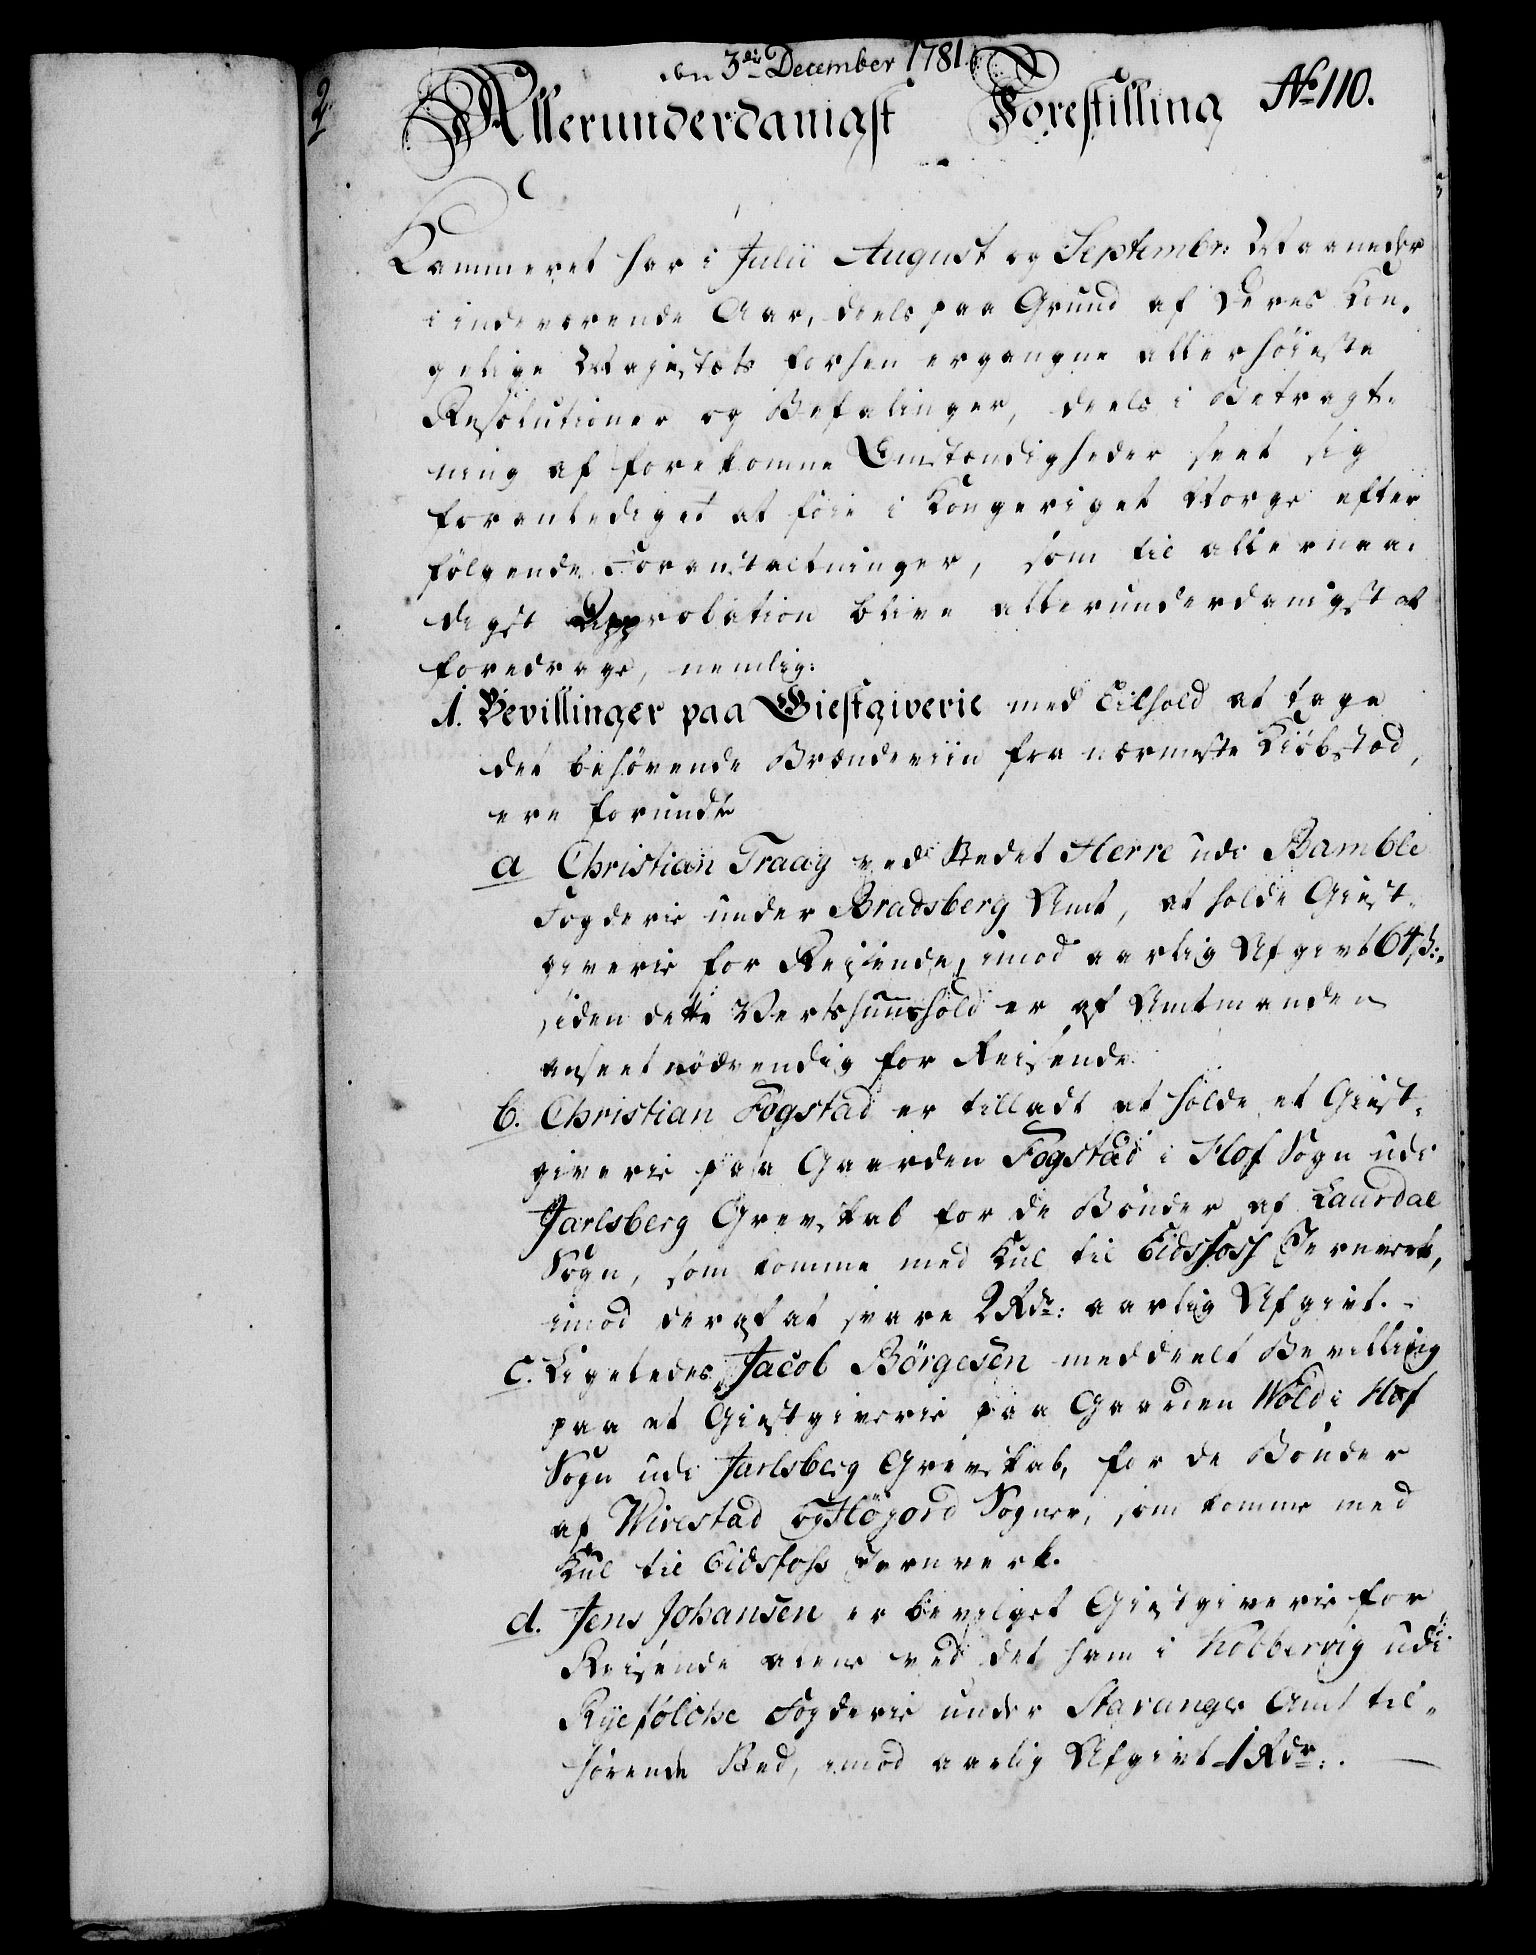 den 3die December 1781.
2.
Allerunderdanigst Forestilling No 110.
Kammeret har i Julii August og Septembr: Maaneder
i indeværende Aar, deels paa Grund af Deres Kon-
gelige Majestæts forhen ergangne allerhöieste
Resolutioner og Befalinger, deels i Betragt-
ning af forekomne Omstændigheder seet sig
foranlediget at föie i Kongeriget Norge efter
fölgende Foranstaltninger, som til allernaa-
digst Approbation blive allerunderdanigst at
foredrage, nemlig:
1. Bevillinger paa Giestgiverie med Tilhold at tage
det behövende Brændeviin fra nærmeste Kiöbstad,
ere forundte
a Christian Traag ved Stedet Herre udi Bamble
Fogderie under Bradsberg Amt, at holde Giest-
giverie for Reisende, imod aarlig Afgivt 64 ß:
siden dette Vertshuushold er af Amtmanden
anseet nödvendig for Reisende
b. Christian Fogstad er tilladt at holde et Giest-
giverie paa Gaarden Fogstad i Hof Sogn udi
Jarlsberg Grevskab for de Bönder af Laurdal
Sogn, som komme med Kul til Eidsfoss Jernverk,
imod deraf at svare 2 Rdr: aarlig Afgivt. -
c. Ligeledes Jacob Börgesen meddeelt Bevilling
paa et Giestgiverie paa Gaarden Wold i Hof
Sogn udi Jarlsberg Grevskab, for de Bönder
af Wivestad og Höjord Sogner, som komme med
Kul til Eidsfoss Jernverk.
d. Jens Johansen er bevilget Giestgiverie for
Reisende alene ved det ham i Kolbervig udi
Ryefölcke Fogderie under Stavanger Amt til-
hörende Sted, imod aarlig Afgivt 1 Rdr:. —